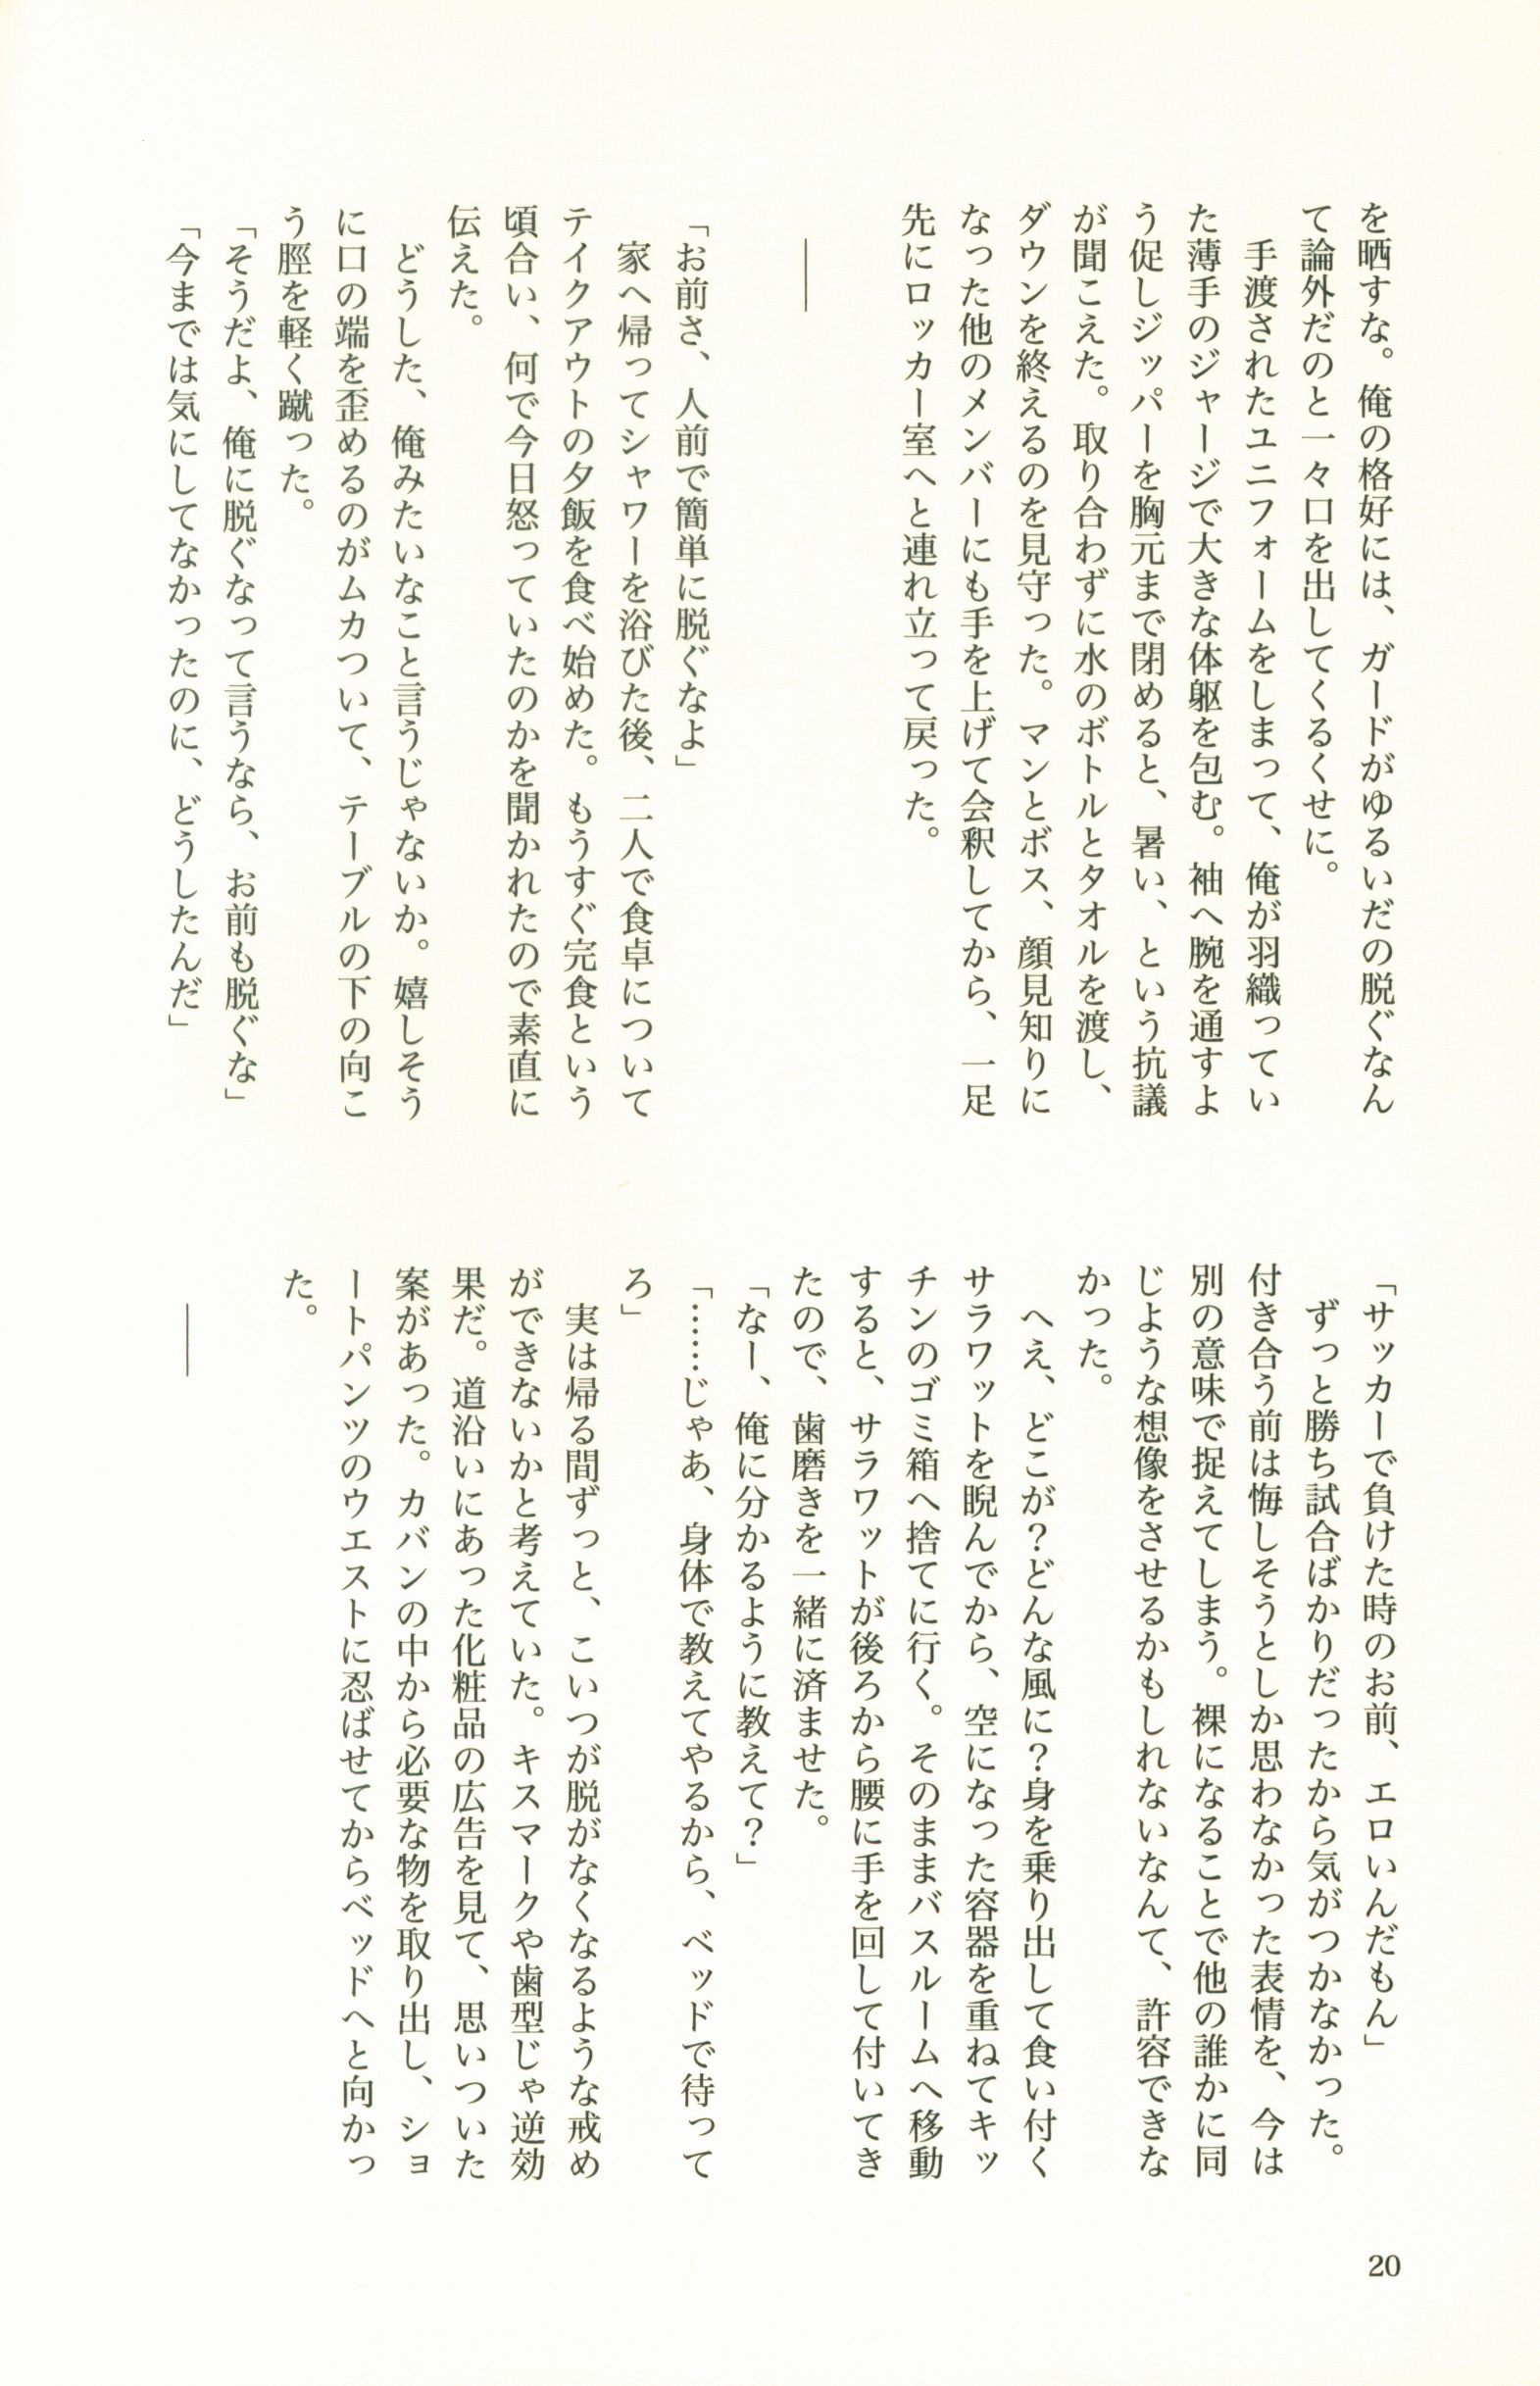 を晒すな。俺の格好には、ガードがゆるいだの脱ぐなん
て論外だのと一々口を出してくるくせに。
手渡されたユニフォームをしまって、俺が羽織ってい
た薄手のジャージで大きな体躯を包む。袖へ腕を通すよ
う促しジッパーを胸元まで閉めると、暑い、という抗議
が聞こえた。取り合わずに水のボトルとタオルを渡し、
ダウンを終えるのを見守った。マンとボス、顔見知りに
なった他のメンバーにも手を上げて会釈してから、一足
先にロッカー室へと連れ立って戻った。
――
「お前さ、人前で簡単に脱ぐなよ」
家へ帰ってシャワーを浴びた後、二人で食卓について
テイクアウトの夕飯を食べ始めた。もうすぐ完食という
頃合い、何で今日怒っていたのかを聞かれたので素直に
伝えた。
どうした、俺みたいなこと言うじゃないか。嬉しそう
に口の端を歪めるのがムカついて、テーブルの下の向こ
う脛を軽く蹴った。
「そうだよ、俺に脱ぐなって言うなら、お前も脱ぐな」
「今までは気にしてなかったのに、どうしたんだ」
「サッカーで負けた時のお前、エロいんだもん」
ずっと勝ち試合ばかりだったから気がつかなかった。
付き合う前は悔しそうとしか思わなかった表情を、今は
別の意味で捉えてしまう。裸になることで他の誰かに同
じような想像をさせるかもしれないなんて、許容できな
かった。
へえ、どこが？どんな風に？身を乗り出して食い付く
サラワットを睨んでから、空になった容器を重ねてキッ
チンのゴミ箱へ捨てに行く。そのままバスルームへ移動
すると、サラワットが後ろから腰に手を回して付いてき
たので、歯磨きを一緒に済ませた。
「なー、俺に分かるように教えて？」
「……じゃあ、身体で教えてやるから、ベッドで待って
ろ」
実は帰る間ずっと、こいつが脱がなくなるような戒め
ができないかと考えていた。キスマークや歯型じゃ逆効
果だ。道沿いにあった化粧品の広告を見て、思いついた
案があった。カバンの中から必要な物を取り出し、ショ
ートパンツのウエストに忍ばせてからベッドへと向かっ
た。
――
20